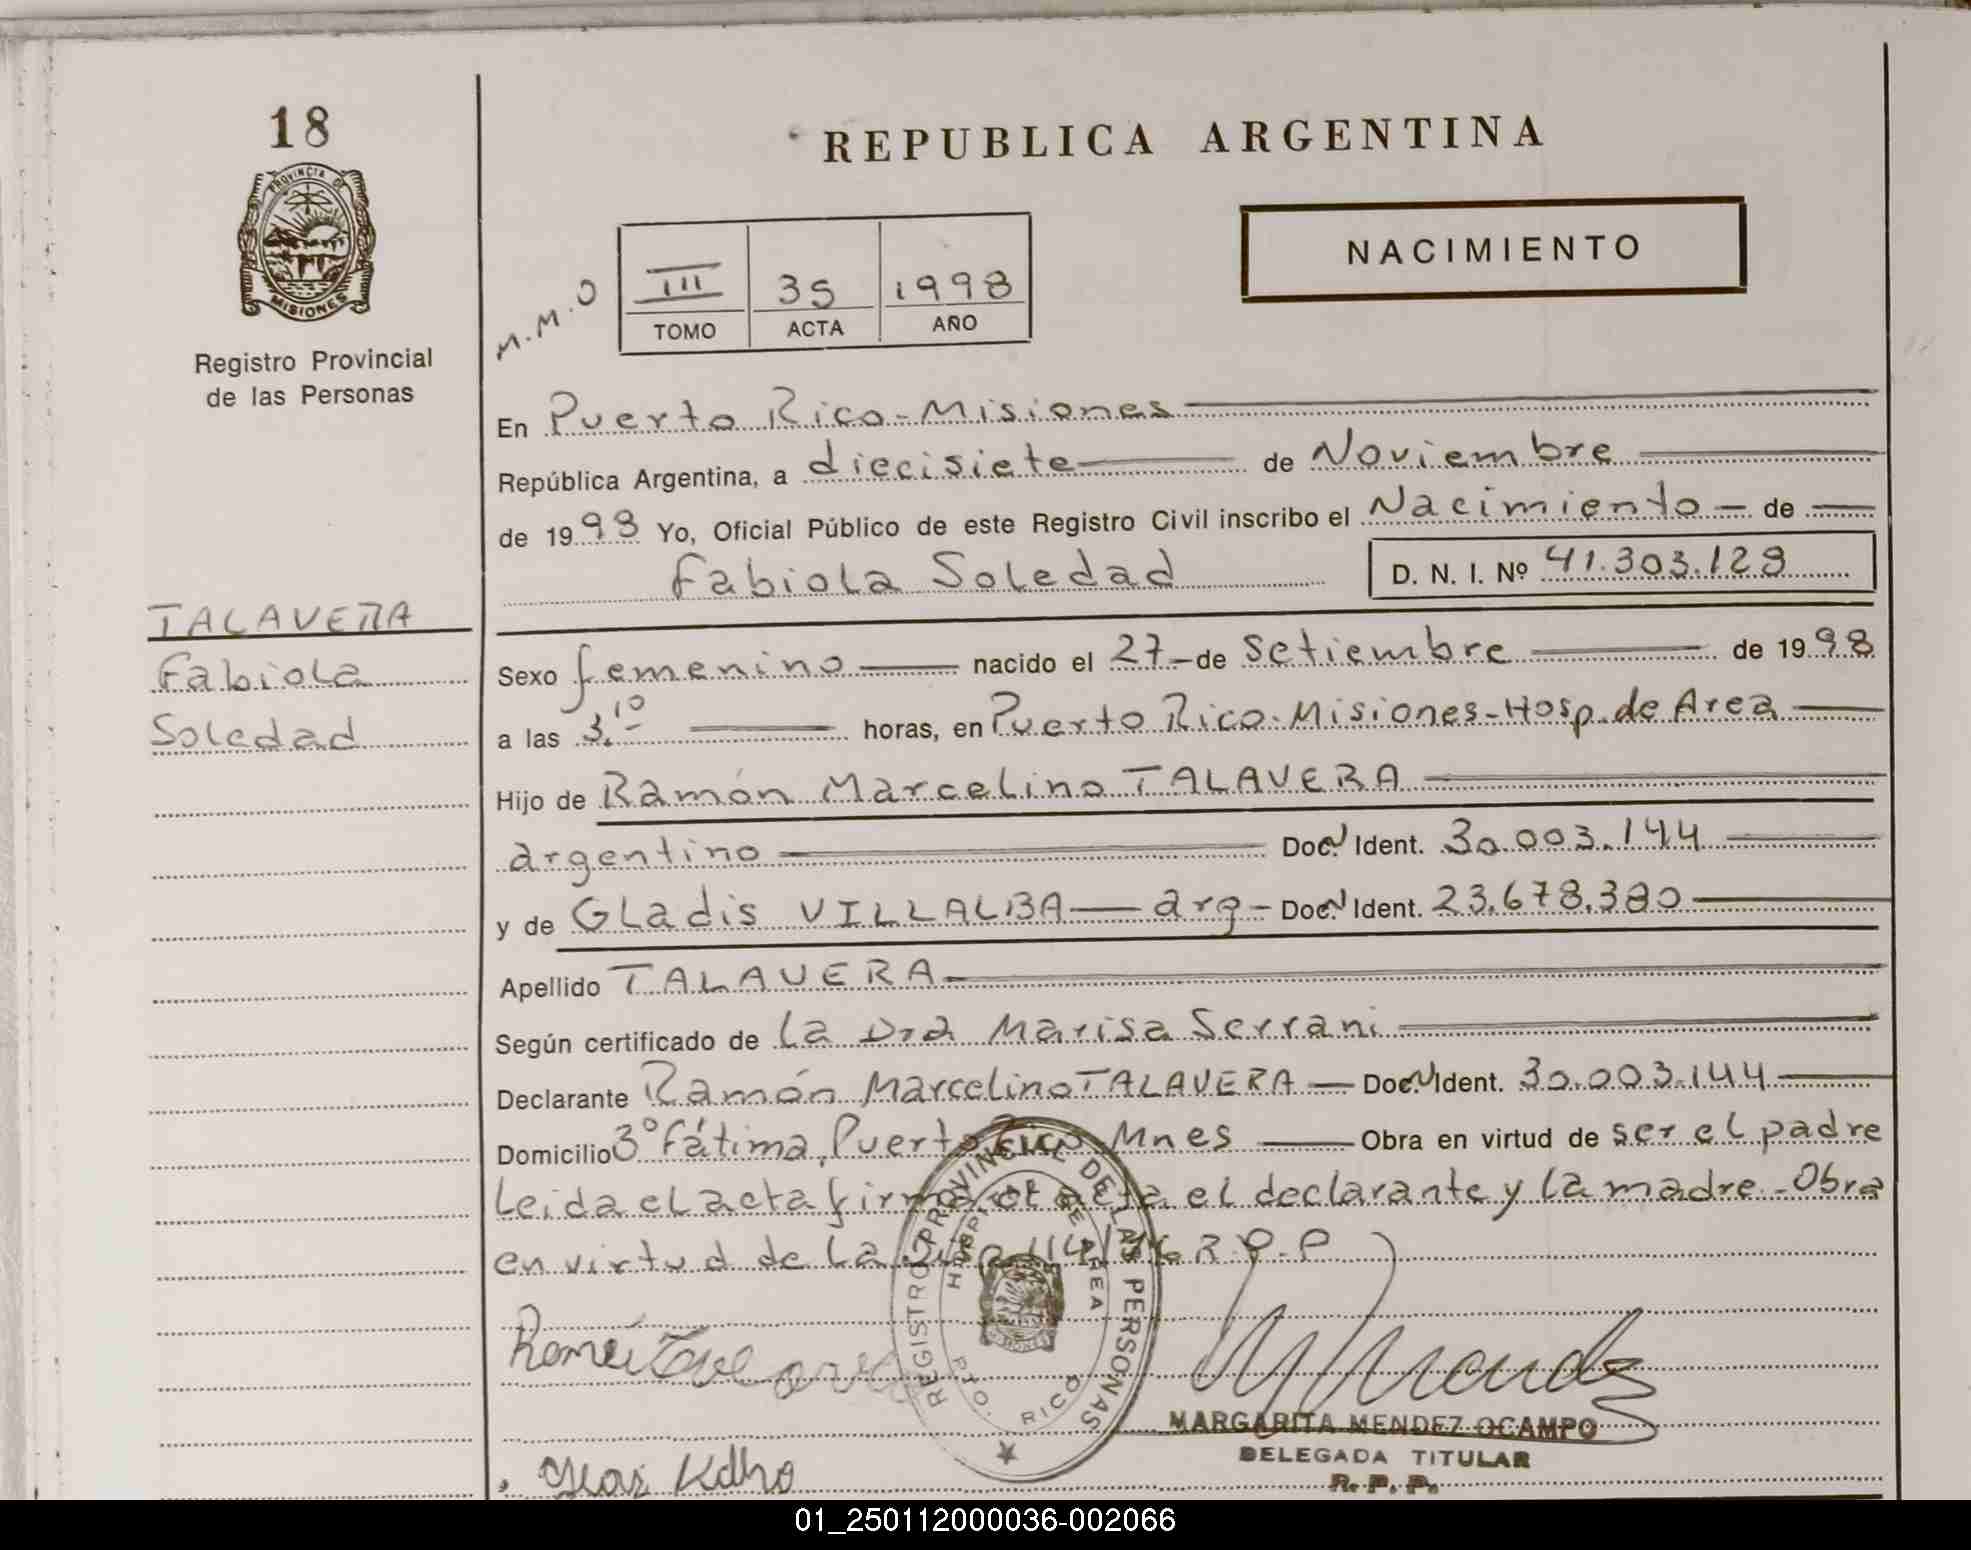 18
PROVINCIA DE
MISIONES
Registro Provincial
de las Personas
REPUBLICA ARGENTINA
NACIMIENTO
M.M.O
III 35 1998
TOMO ACTA AÑO
En Puerto Rico-Misiones
República Argentina, a diecisiete de Noviembre
de 1998 Yo, Oficial Público de este Registro Civil inscribo el Nacimiento - de
Fabiola Soledad D. N. I. Nº 41.303.129
TALAVERA
Fabiola
Soledad
Sexo femenino nacido el 27 - de Setiembre de 1998
a las 3.10 horas, en Puerto Rico-Misiones-Hosp. de Area
Hijo de Ramón Marcelino TALAVERA
argentino Doc. Ident. 30.003.144
y de Gladis VILLALBA - arg - Doc. Ident. 23.678.380
Apellido TALAVERA
Según certificado de la Dra Marisa Serrani
Declarante Ramón Marcelino TALAVERA - Doc. Ident. 30.003.144
Domicilio 3º Fátima, Puerto Rico Mnes Obra en virtud de ser el padre
Leida el acta firma el declarante y la madre - Obra
en virtud de la R.P.P
REGISTRO PROVINCIAL DE LAS PERSONAS
HOSPITAL DE AREA
PTO. RICO
MARGARITA MENDEZ OCAMPO
DELEGADA TITULAR
R. P. P.
01_250112000036-002066